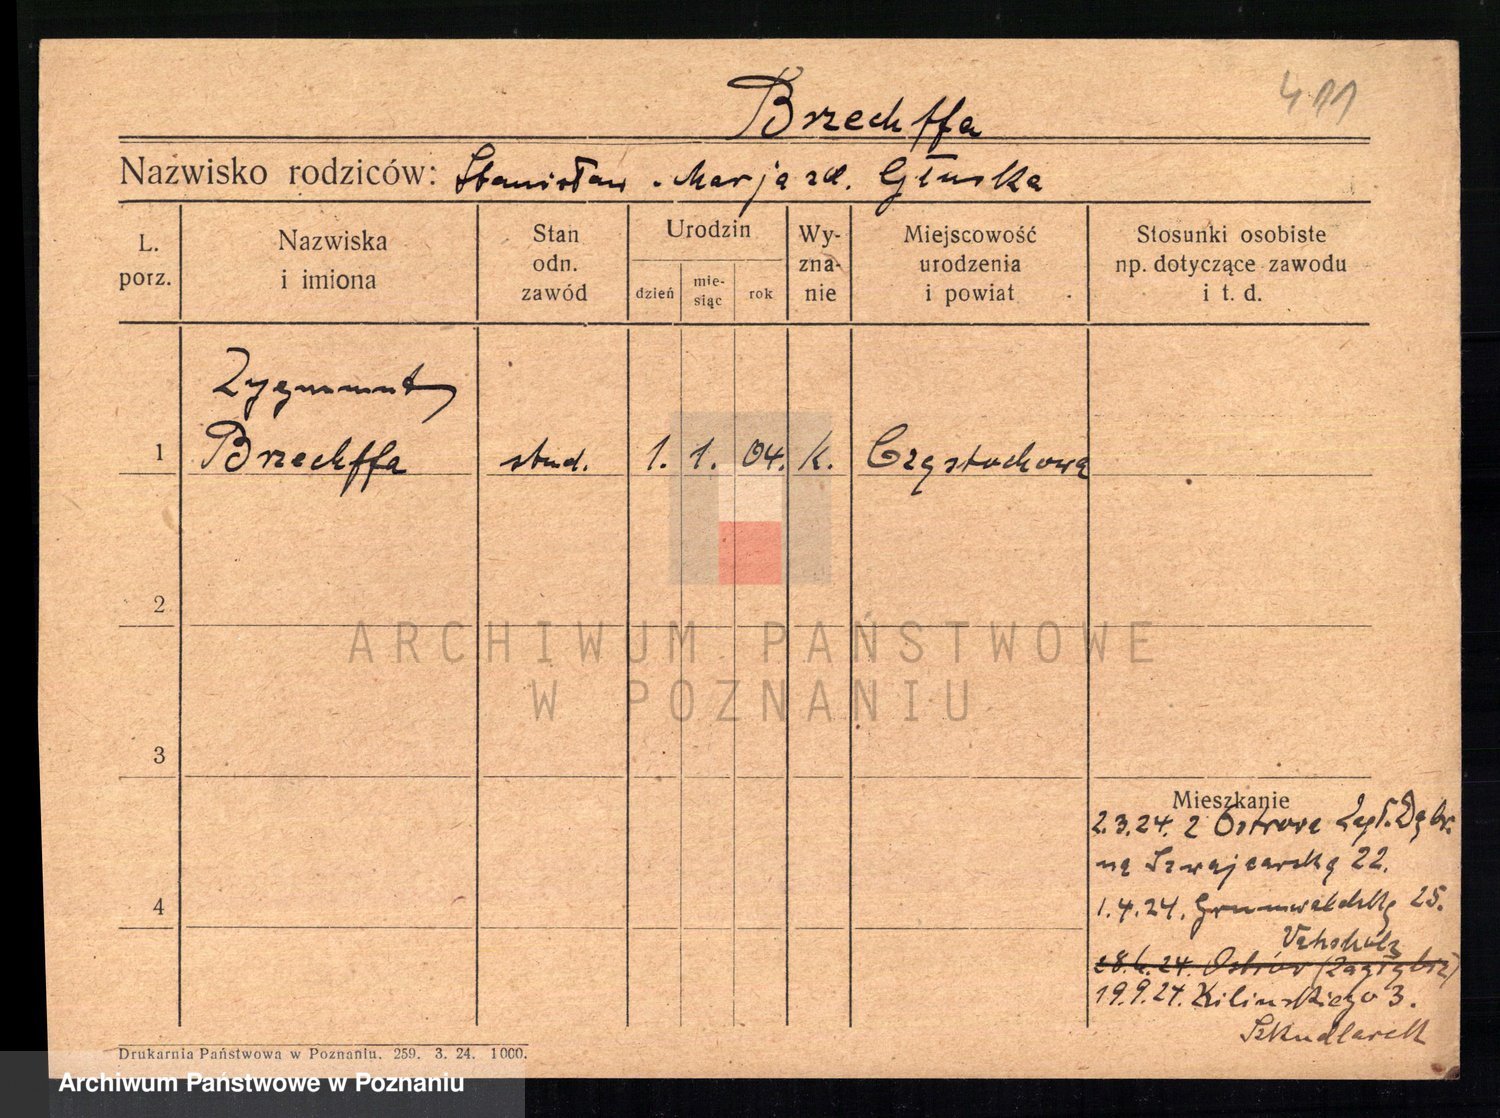 Brzechffa
411
Nazwisko rodziców: Stanisław - Marja zd. Głuska
L. porz.
Nazwiska i imiona
Stan odn. zawód
Urodzin
dzień
mie-siąc
rok
Wy-zna-nie
Miejscowość urodzenia i powiat
Stosunki osobiste np. dotyczące zawodu i t. d.
Zygmunt
1 Brzechffa stud. 1. 1. 04. k. Częstochowa
2
3
4
ARCHIWUM PAŃSTWOWE
W POZNANIU
Mieszkanie
2.3.24. z Ostrowa Zagł. Dąbr.
na Szwajcarską 22.
1.4.24. Grunwaldzką 25.
28.6.24. Ostrów (Zagłębie)
19.9.24. Kilińskiego 3.
Szkudlarek
Drukarnia Państwowa w Poznaniu. 259. 3. 24. 1000.
Archiwum Państwowe w Poznaniu